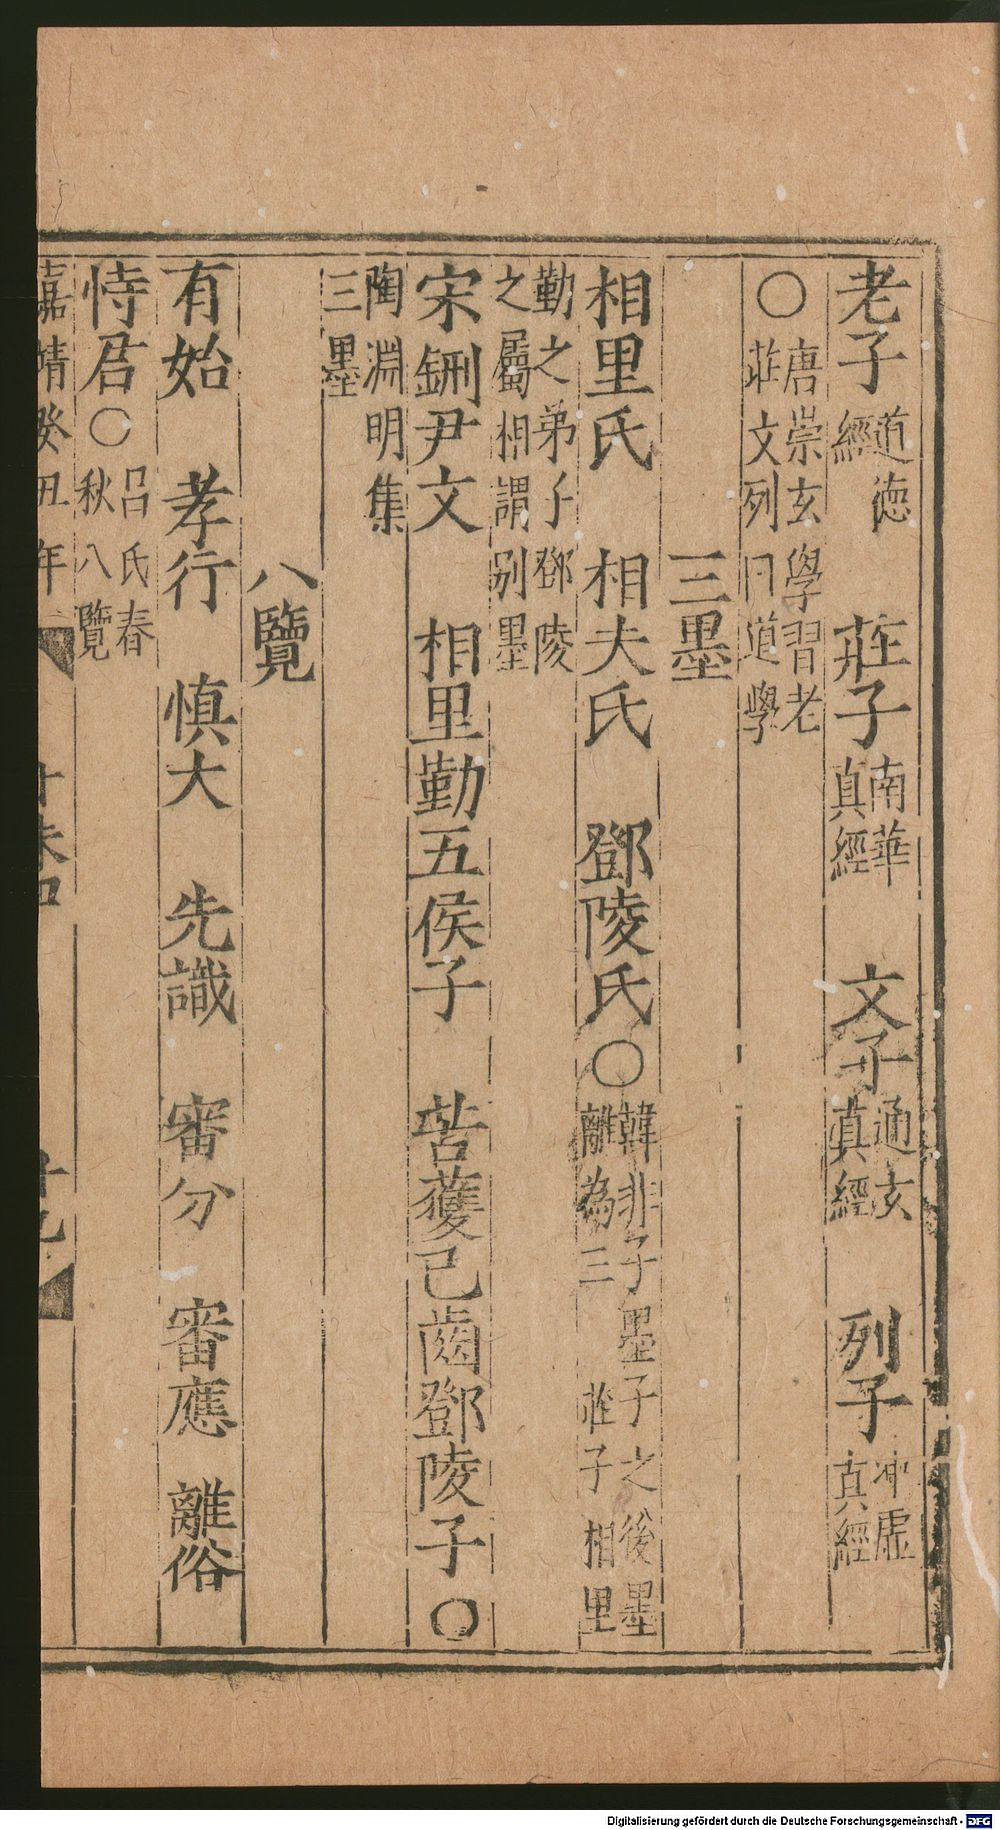 老子道德經 莊子南華真經 文子通玄真經 列子冲虛真經
○唐崇玄學習老莊文列曰道學
三墨
相里氏 相夫氏 鄧陵氏○韓非子墨子之後墨離為三 莊子相里
勤之弟子鄧陵之屬相謂别墨
宋鉶尹文 相里勤五侯子 苦蒦己齒鄧陵子○
陶淵明集三墨
八覽
有始 孝行 慎大 先識 審分 審應 離俗
恃君○呂氏春秋八覽
嘉靖癸丑年
Digitalisierung gefördert durch die Deutsche Forschungsgemeinschaft - DFG